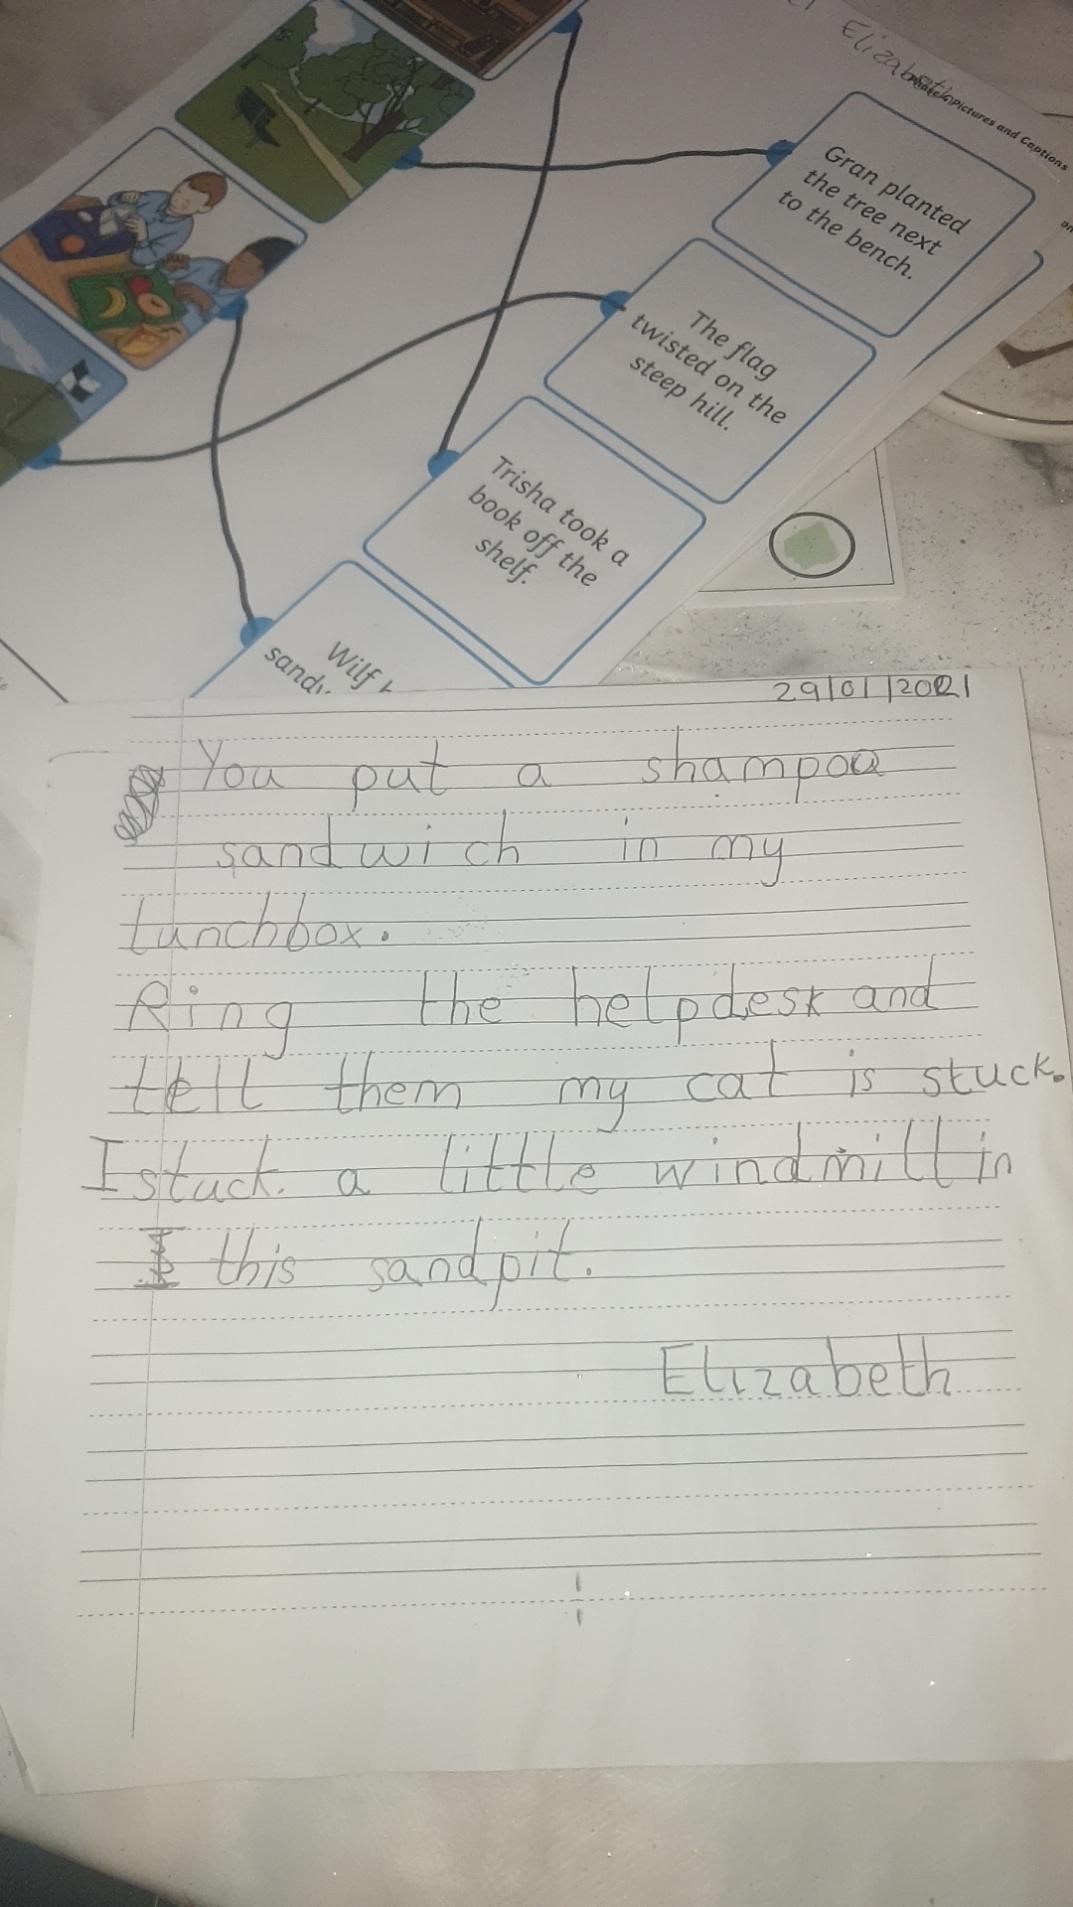 Elizabeth
Pictures and Captions
Gran planted
the tree next
to the bench.
The flag
twisted on the
steep hill.
Trisha took a
book off the
shelf.
Wilf
sandw
29/01/2021
You put a shampoo
sandwich in my
lunchbox.
Ring the helpdesk and
tell them my cat is stuck.
I stuck a little windmill in
this sandpit.
Elizabeth